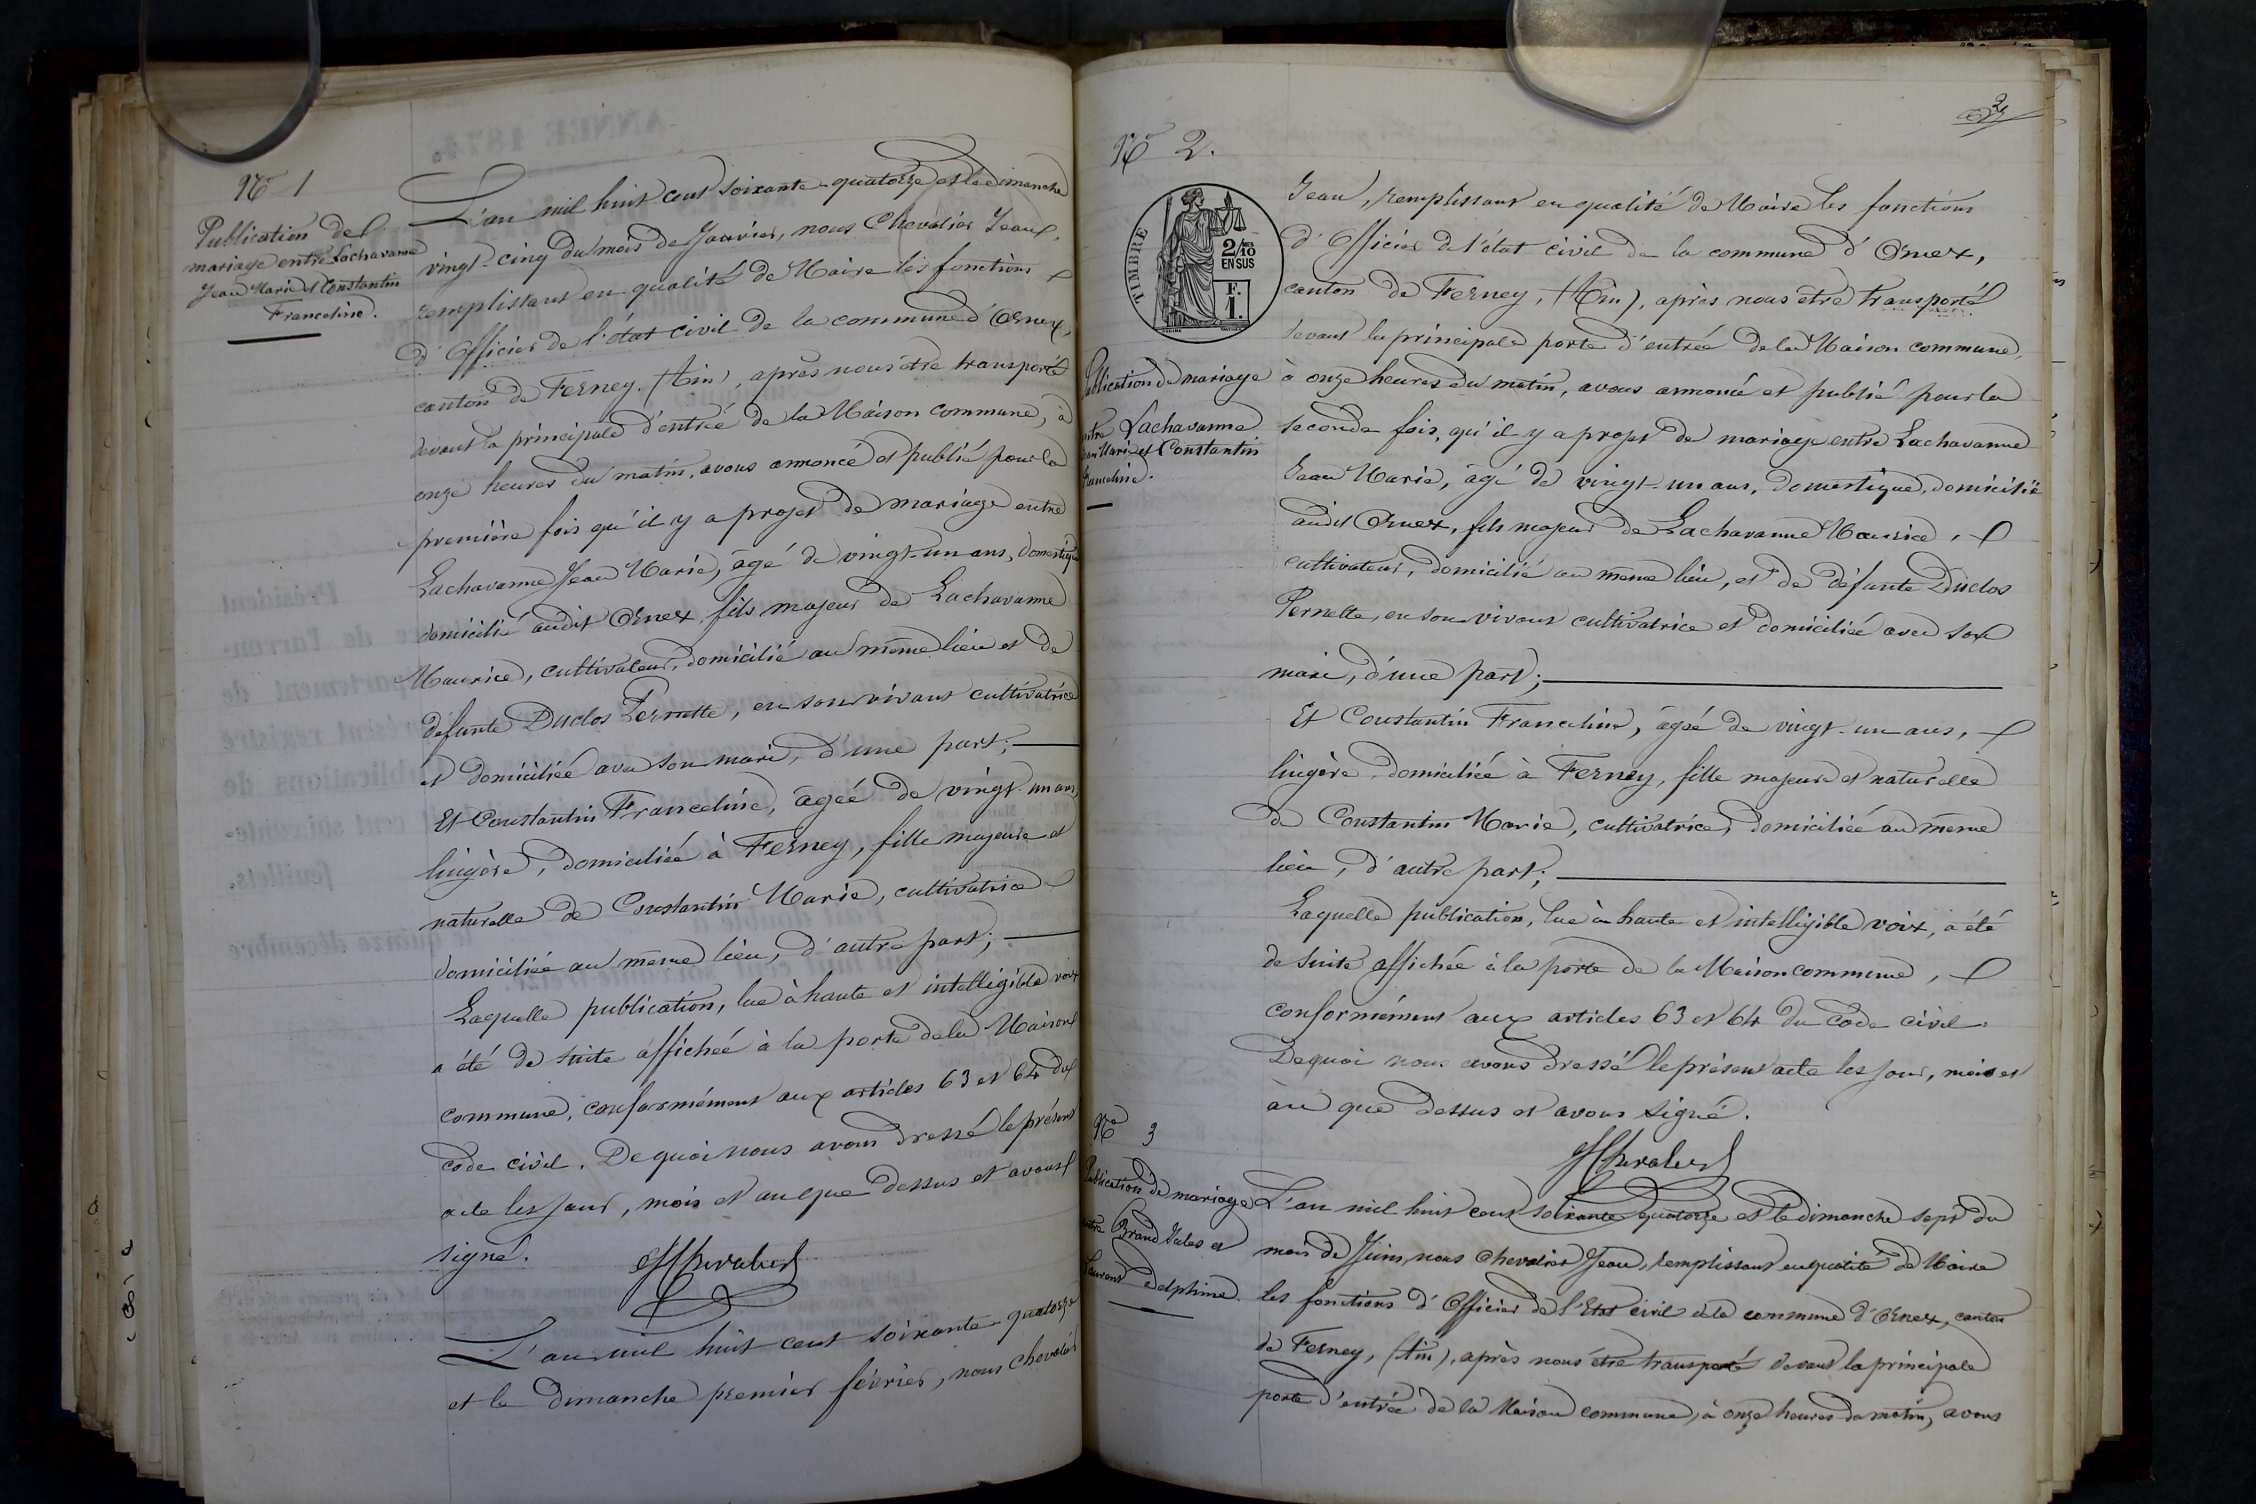 N° 1
Publication de
mariage entre Lachavanne
Jean Marie et Constantin
Franceline.
L'an mil huit cent soixante-quatorze et le dimanche
vingt-cinq du mois de Janvier, nous Chevalier Jean,
remplissant en qualité de Maire les fonctions
d'Officier de l'état civil de la commune d'Ornex,
canton de Ferney (Ain), après nous être transporté
devant la principale d'entrée de la Maison commune, à
onze heures du matin, avons annoncé et publié pour la
première fois qu'il y a projet de mariage entre
Lachavanne Jean Marie, âgé de vingt-un ans, domestique
domicilié audit Ornex, fils majeur de Lachavanne
Maurice, cultivateur, domicilié au même lieu et de
défunte Duclos Pernette, en son vivant cultivatrice
et domiciliée avec son mari, d'une part;
Et Constantin Franceline, âgée de vingt-un ans,
lingère, domiciliée à Ferney, fille majeure et
naturelle de Constantin Marie, cultivatrice
domiciliée au même lieu, d'autre part;
Laquelle publication, lue à haute et intelligible voix
a été de suite affichée à la porte de la Maison
commune, conformément aux articles 63 et 64 du
code civil. De quoi nous avons dressé le présent
acte les jour, mois et an que dessus et avons
signé.
JChevalier
L'an mil huit cent soixante quatorze
et le dimanche premier février, nous Chevalier
2
N° 2.
TIMBRE
2/10
EN SUS
F.
1.
Publication de mariage
entre Lachavanne
Jean Marie et Constantin
Franceline.
Jean, remplissant en qualité de Maire les fonctions
d'Officier de l'état civil de la commune d'Ornex,
canton de Ferney, (Ain), après nous être transporté
devant la principale porte d'entrée de la Maison commune,
à onze heures du matin, avons annoncé et publié pour la
seconde fois, qu'il y a projet de mariage entre Lachavanne
Jean Marie, âgé de vingt-un ans, domestique, domicilié
audit Ornex, fils majeur de Lachavanne Maurice,
cultivateur, domicilié au même lieu, et de défunte Duclos
Pernette, en son vivant cultivatrice et domiciliée avec son
mari, d'une part;
Et Constantin Franceline, âgée de vingt-un ans,
lingère, domiciliée à Ferney, fille majeure et naturelle
de Constantin Marie, cultivatrice, domiciliée au même
lieu, d'autre part;
Laquelle publication, lue à haute et intelligible voix, a été
de suite affichée à la porte de la Maison commune,
conformément aux articles 63 et 64 du code civil.
De quoi nous avons dressé le présent acte les jour, mois et
an que dessus et avons signé.
JChevalier
N° 3
Publication de mariage
entre Brand Jules et
Laurent Delphine.
L'an mil huit cent soixante quatorze et le dimanche sept du
mois de Juin, nous Chevalier Jean, remplissant en qualité de Maire
les fonctions d'Officier de l'Etat civil de la commune d'Ornex, canton
de Ferney, (Ain), après nous être transporté devant la principale
porte d'entrée de la Maison commune, à onze heures du matin, avons